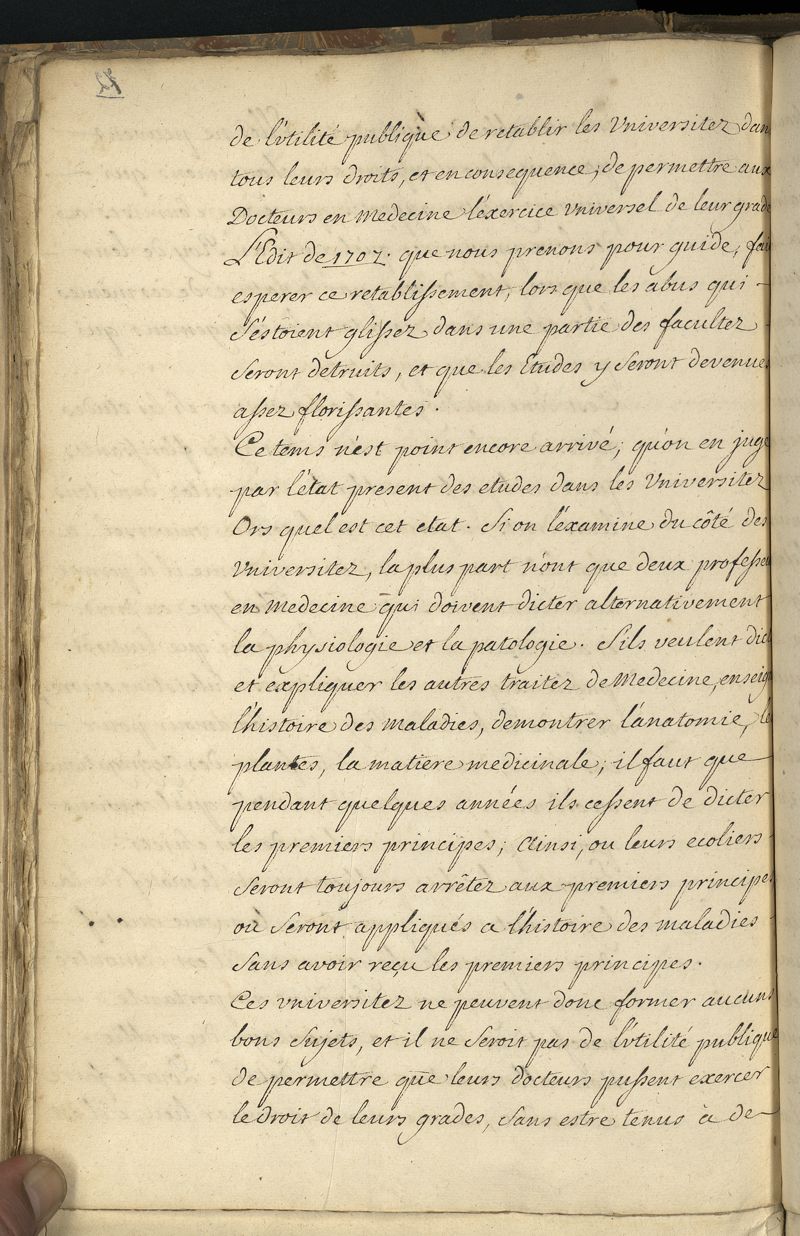 de l'vtilité publique de retablir les Vniversitez dan
tous leurs droits, et en consequence, de permettre aux
Docteurs en Medecine l'éxercice vniversel de leur grade
L'Edit de 1707. que nous prenons pour guide, fai
esperer ce retablissement, lors que les abus qui -
s'éstoient glissez dans une partie des facultez -
seront detruits, et que les Etudes y seront devenues
assez florissantes.
Ce tems n'est point encore arrivé, qu'on en juge
par l'état present des etudes dans les Vniversitez
Ors quel est cet etat. Si on l'éxamine du côté des
Vniversitez, la plus part n'ont que deux professeu
en Medecine qui doivent dicter alternativement
la physiologie et la patologie. S'ils veulent dict
et expliquer les autres traitez de Medecine, enseig
l'histoire des maladies, demontrer l'anatomie, le
plantes, la matiere medicinale, il faut que
pendant quelques années ils cessent de dicter
les premiers principes; Ainsi, ou leurs ecoliers -
seront toujours arrêtez aux premiers principes
ou seront appliqués a l'histoire des maladies -
sans avoir reçu les premiers principes.
Ces vniversitez ne peuvent donc former aucuns
bons sujets, et il ne seroit pas de l'vtilité publique
de permettre que leurs docteurs pussent exercer
le droit de leurs grades, sans estre tenus à de